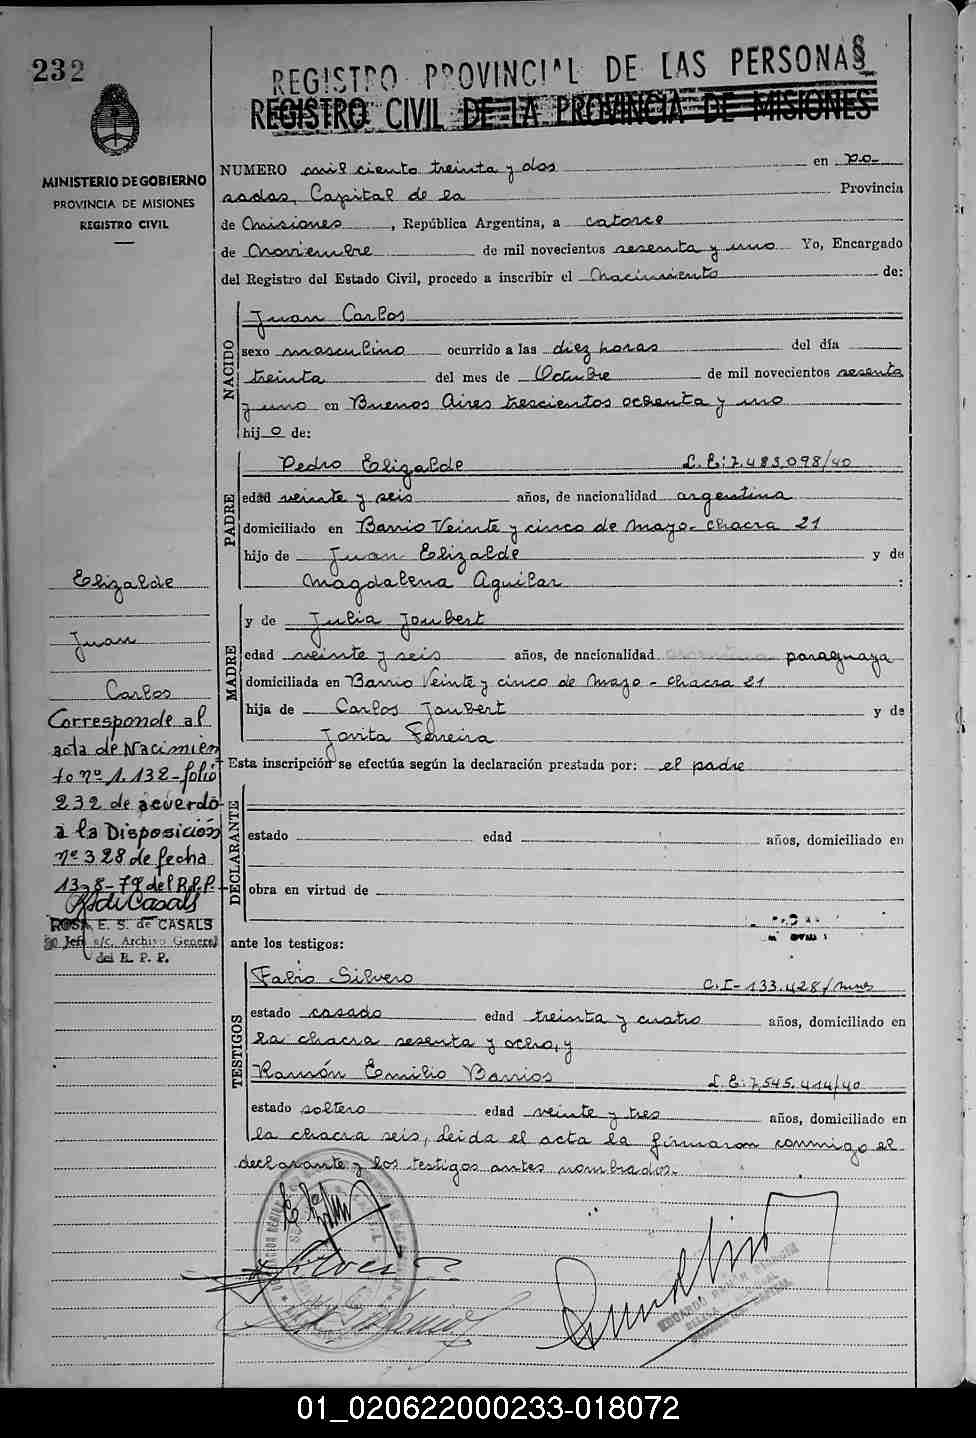 232
REGISTRO PROVINCIAL DE LAS PERSONAS
REGISTRO CIVIL DE LA PROVINCIA DE MISIONES
MINISTERIO DE GOBIERNO
PROVINCIA DE MISIONES
REGISTRO CIVIL
NUMERO mil ciento treinta y dos en Po-
sadas, Capital de la Provincia
de Misiones, República Argentina, a catorce
de Noviembre de mil novecientos sesenta y uno Yo, Encargado
del Registro del Estado Civil, procedo a inscribir el Nacimiento de:
NACIDO
Juan Carlos
sexo masculino ocurrido a las diez horas del día
treinta del mes de Octubre de mil novecientos sesenta
y uno en Buenos Aires trescientos ochenta y uno
hijo de:
PADRE
Pedro Elizalde L.E: 7.483.098/40
edad veinte y seis años, de nacionalidad argentina
domiciliado en Barrio Veinte y cinco de Mayo - chacra 21
hijo de Juan Elizalde y de
Magdalena Aguilar :
MADRE
y de Julia Joubert
edad veinte y seis años, de nacionalidad argentina paraguaya
domiciliada en Barrio Veinte y cinco de Mayo - chacra 21
hija de Carlos Joubert y de
Jovita Ferreira
Esta inscripción se efectúa según la declaración prestada por: el padre
DECLARANTE
estado edad años, domiciliado en
obra en virtud de
ante los testigos:
TESTIGOS
Fabio Silvero C.I-133.428/mnes
estado casado edad treinta y cuatro años, domiciliado en
la chacra sesenta y ocho, y
Ramón Emilio Barrios L.E: 7.545.414/40
estado soltero edad veinte y tres años, domiciliado en
la chacra seis, leida el acta la firmaron conmigo el
declarante y los testigos antes nombrados.
Elizalde
Juan
Carlos
Corresponde al
acta de Nacimien
to nº 1.132-folio
232 de acuerdo
a la Disposición
nº 328 de fecha
13-8-79 del R.P.P.
RSdeCasals
ROSA E. S. de CASALS
Jefe a/c. Archivo General
del R. P. P.
01_020622000233-018072